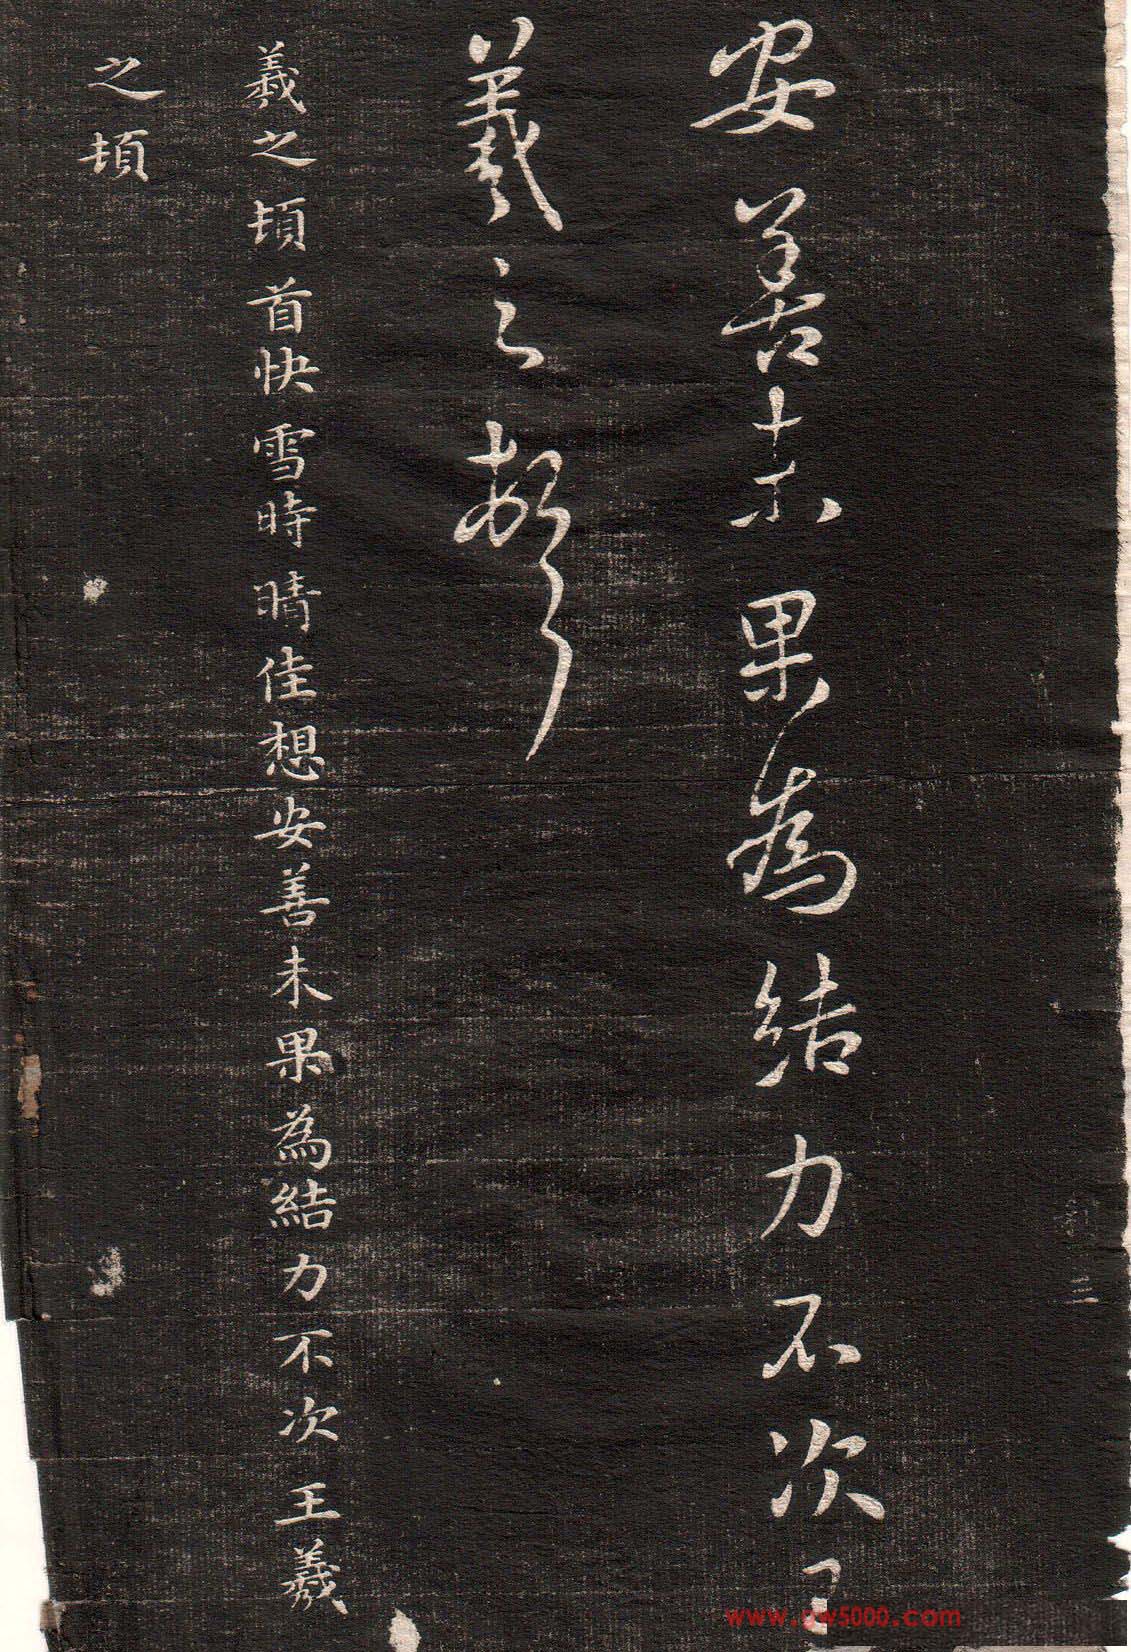 安善未果為結力不次王
羲之頓
羲之頓首快雪時晴佳想安善未果為結力不次王羲
之頓
三
www.gw5000.com